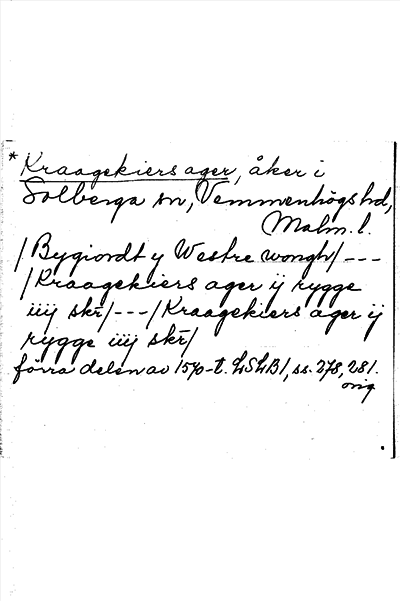 * Kraagekiers ager, åker i
Solberga sn, Vemmenhögs hd,
Malm. l.
/Bygiordt y Westre wongh/---
/Kraagekiers ager ij rygge
iiij skr̄/---/Kraagekiers ager ij
rygge iiij skr̄/
förra delen av 1570-t. LSLB1, ss. 278, 281.
orig